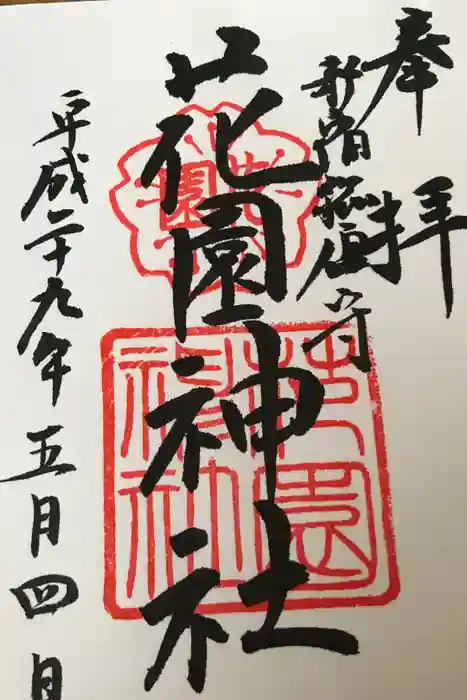 奉拝
新宿総鎮守
花園神社
平成二十九年五月四日
花園
花園神社